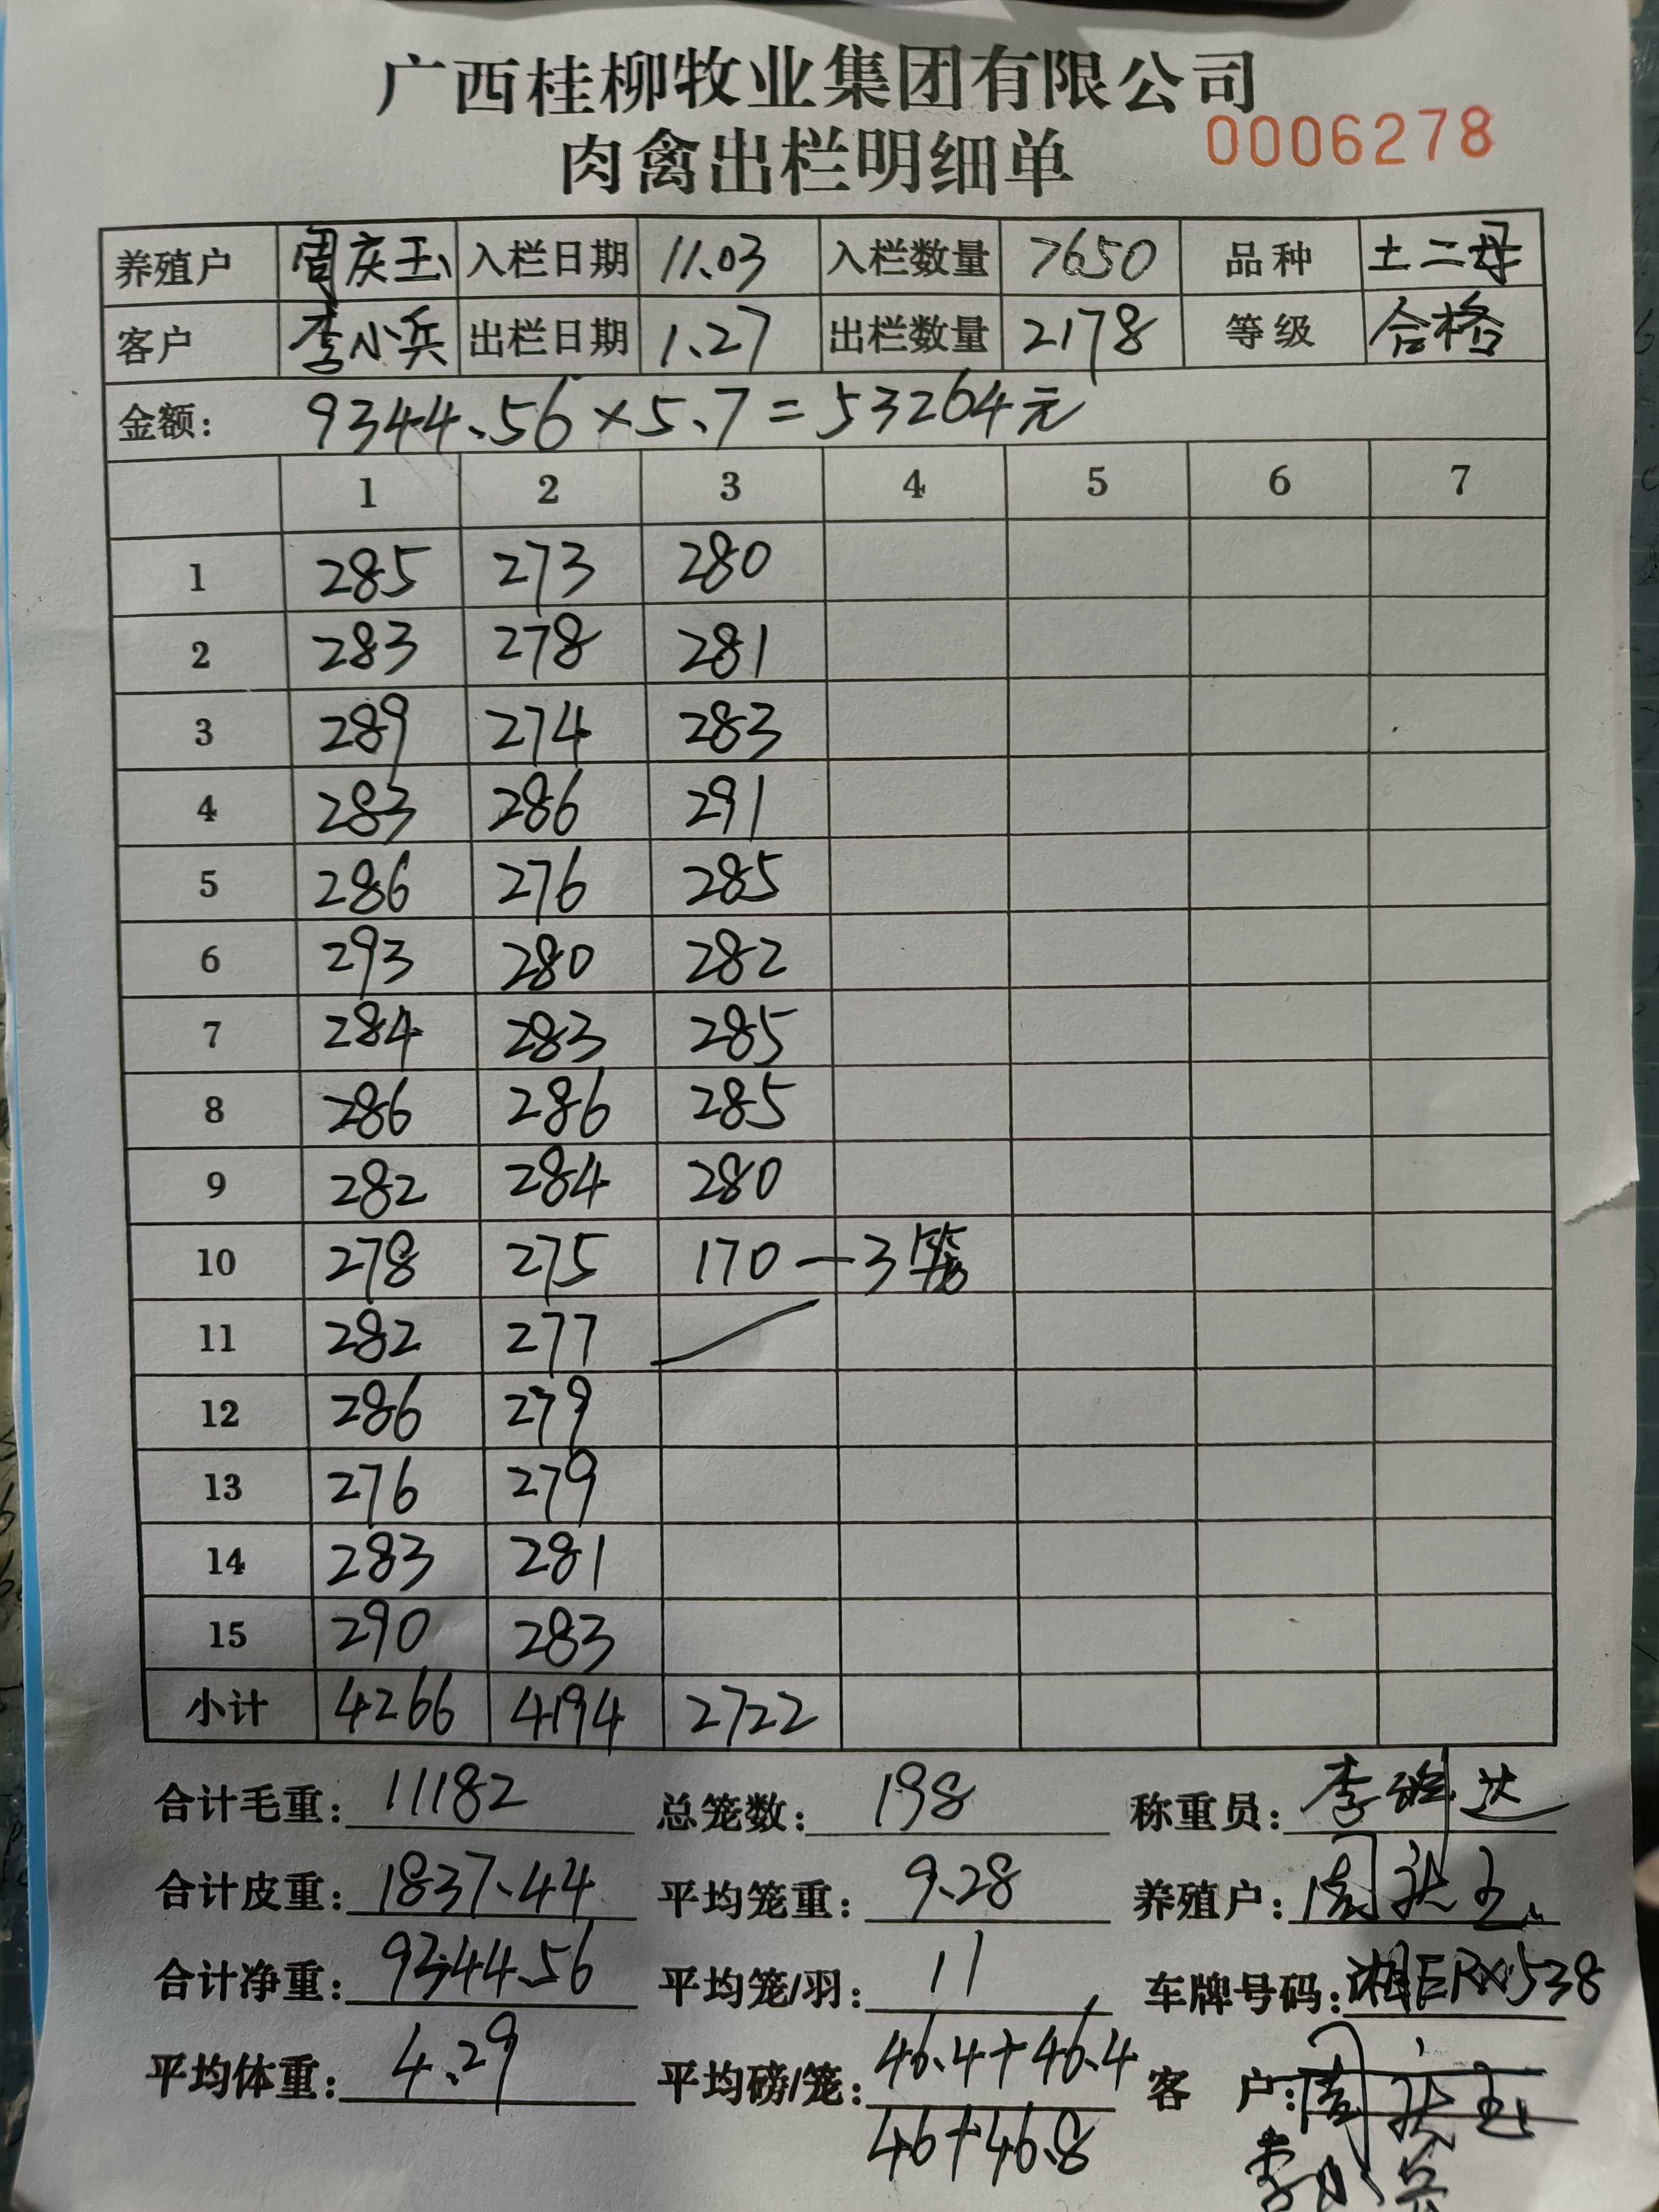 广西桂柳牧业集团有限公司
肉禽出栏明细单 0006278
养殖户 周庆玉 入栏日期 11.03 入栏数量 7650 品种 土二母
客户 李小兵 出栏日期 1.27 出栏数量 2178 等级 合格
金额: 9344.56×5.7=53264元
1 2 3 4 5 6 7
1 285 273 280
2 283 278 281
3 289 274 283
4 283 286 291
5 286 276 285
6 293 280 282
7 284 283 285
8 286 286 285
9 282 284 280
10 278 275 170—3笼
11 282 277
12 286 279
13 276 279
14 283 281
15 290 283
小计 4266 4194 2722
合计毛重: 11182 总笼数: 198 称重员: 李 达
合计皮重: 1837.44 平均笼重: 9.28 养殖户: 周庆玉
合计净重: 9344.56 平均笼/羽: 11 车牌号码: 湘ERX538
平均体重: 4.29 平均磅/笼: 46.4+46.4 客 户: 周庆玉
46+46.8 李小兵